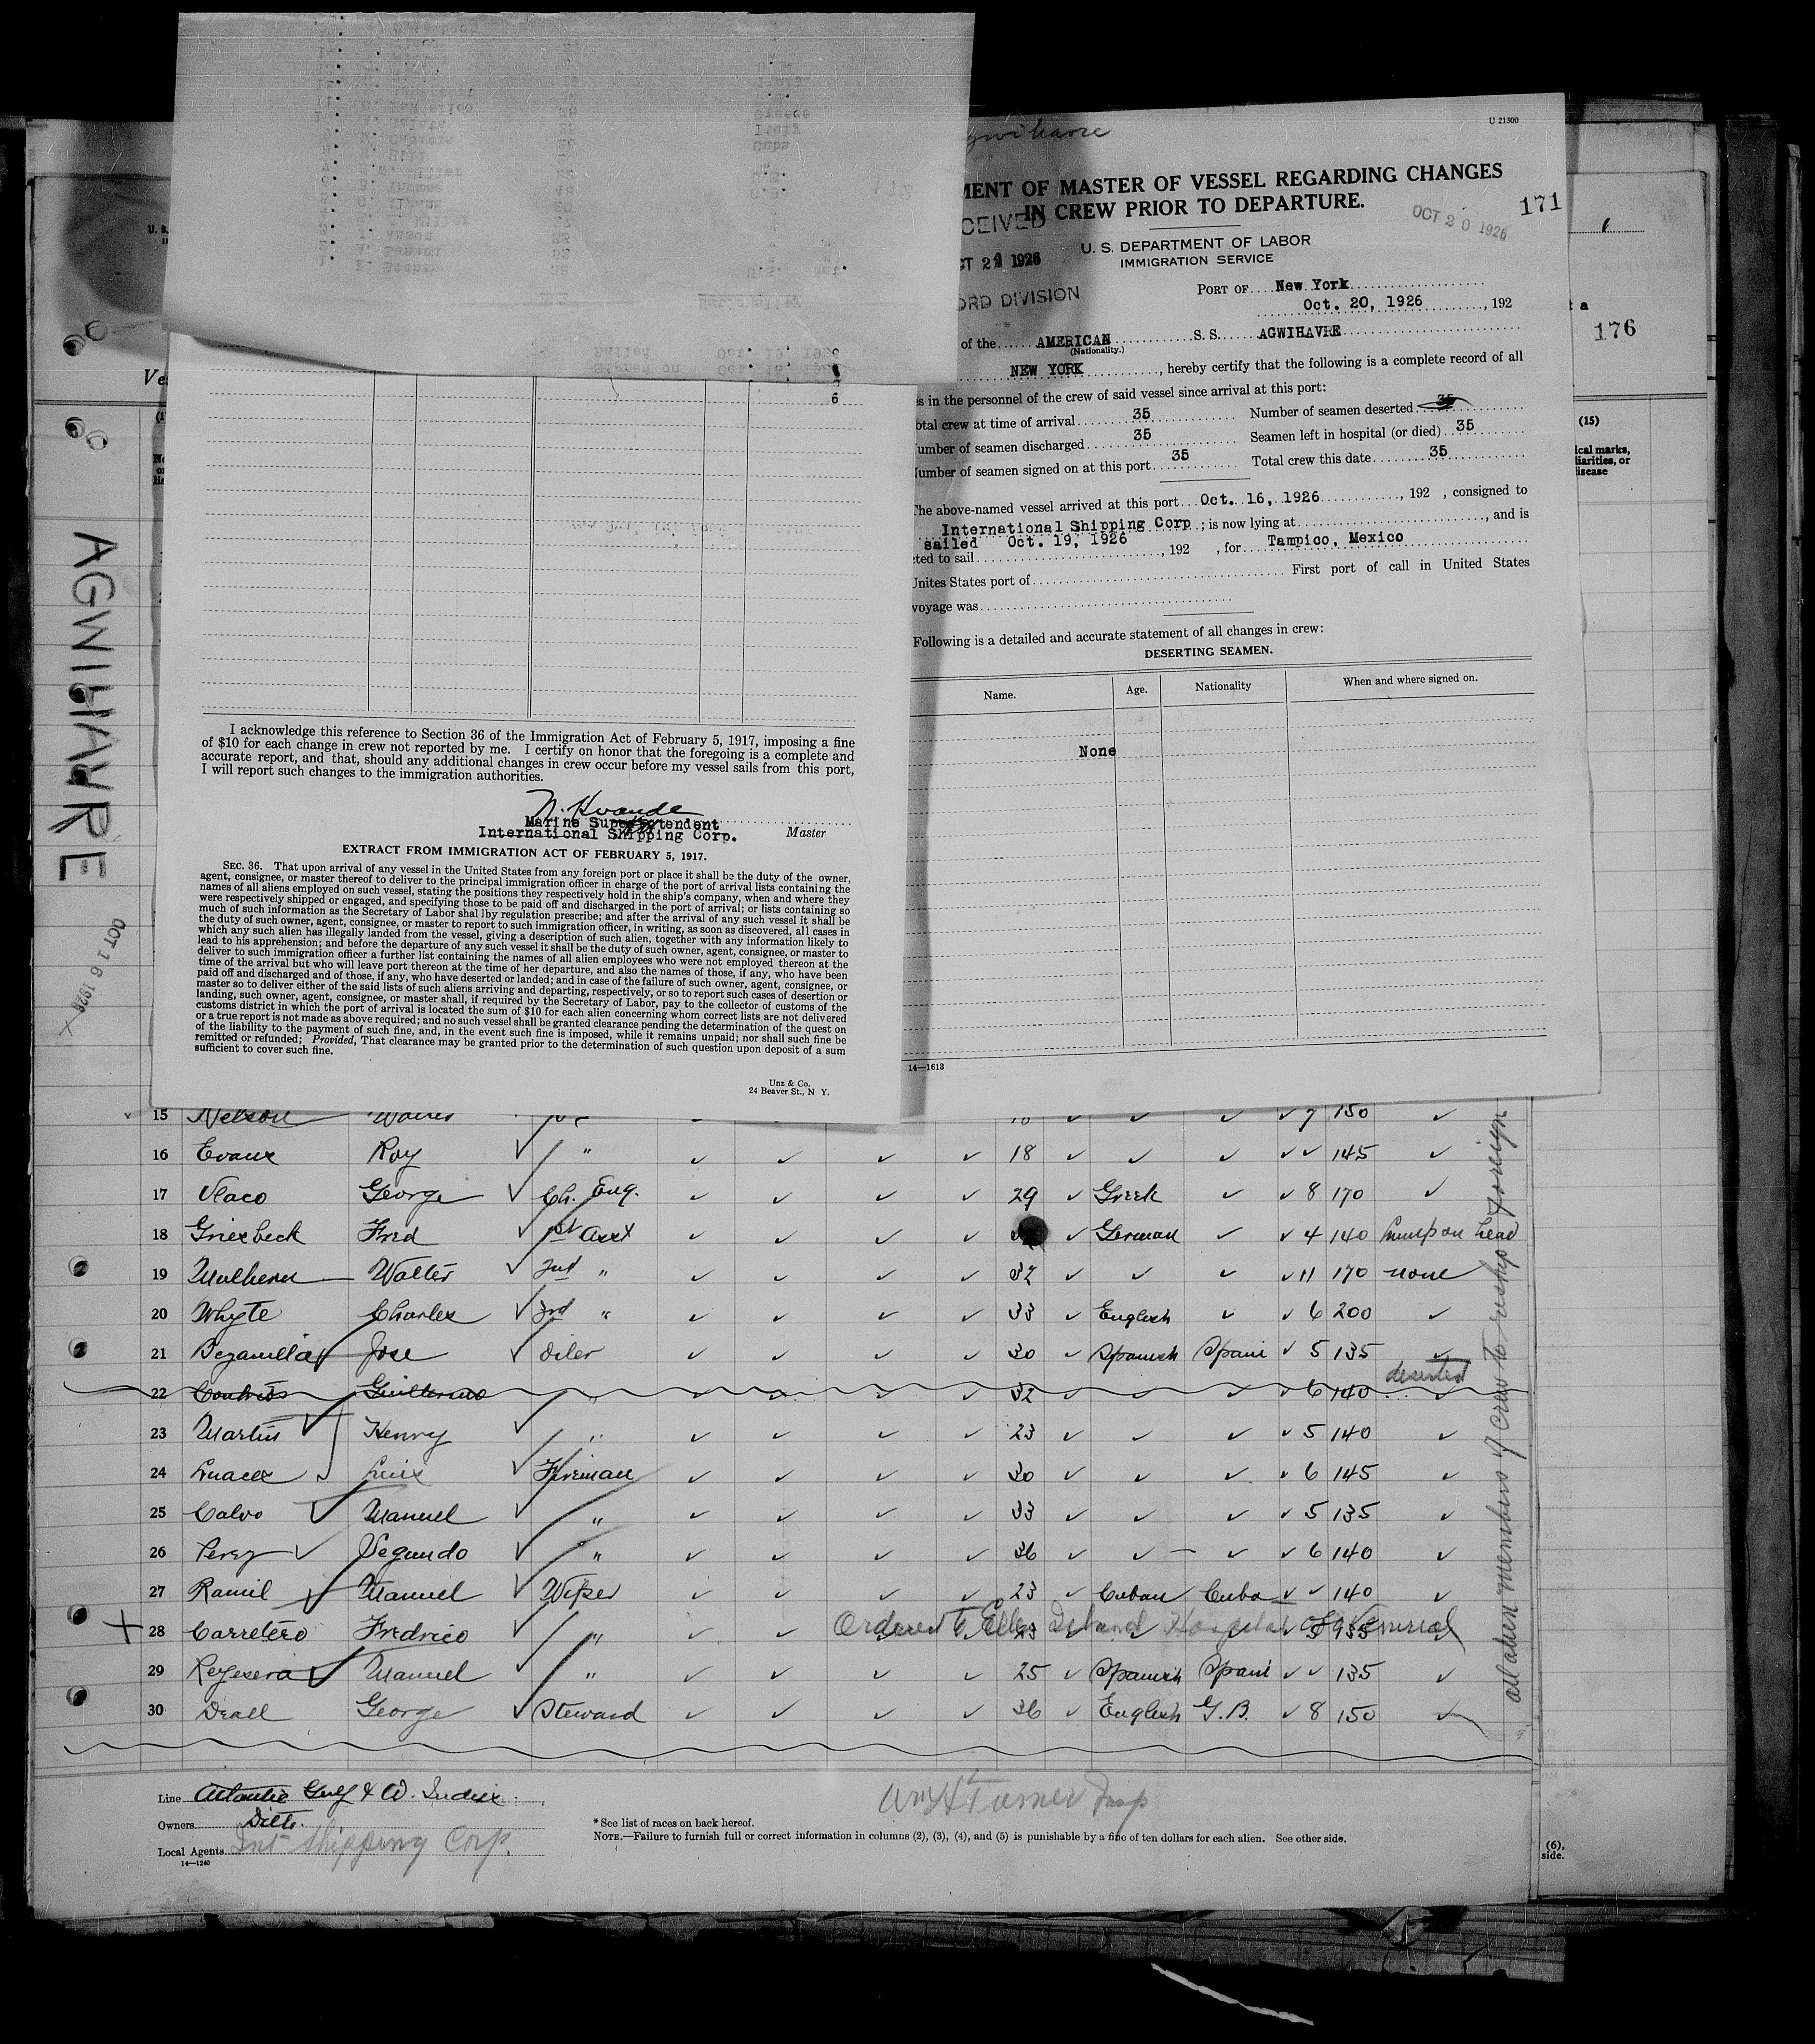 U 21300
MENT OF MASTER OF VESSEL REGARDING CHANGES
IN CREW PRIOR TO DEPARTURE.
CEIVED
OCT 20 1926
171
U. S. DEPARTMENT OF LABOR
IMMIGRATION SERVICE
1926
ORD DIVISION
PORT OF New York
Oct. 20, 1926, 192
of the AMERICAN S. S. AGWIHAVRE
(Nationality.)
NEW YORK, hereby certify that the following is a complete record of all
es in the personnel of the crew of said vessel since arrival at this port:
otal crew at time of arrival 35 Number of seamen deserted
umber of seamen discharged 35 Seamen left in hospital (or died) 35
Number of seamen signed on at this port 35 Total crew this date 35
The above-named vessel arrived at this port Oct. 16, 1926, 192 , consigned to
International Shipping Corp ; is now lying at , and is
sailed Oct. 19, 1926
cted to sail , 192 , for Tampico, Mexico
Unites States port of First port of call in United States
voyage was
Following is a detailed and accurate statement of all changes in crew:
DESERTING SEAMEN.
Name. Age. Nationality When and where signed on.
None
14—1613
6
I acknowledge this reference to Section 36 of the Immigration Act of February 5, 1917, imposing a fine
of $10 for each change in crew not reported by me. I certify on honor that the foregoing is a complete and
accurate report, and that, should any additional changes in crew occur before my vessel sails from this port,
I will report such changes to the immigration authorities.
Marine Superintendent
International Shipping Corp. Master
EXTRACT FROM IMMIGRATION ACT OF FEBRUARY 5, 1917.
SEC. 36. That upon arrival of any vessel in the United States from any foreign port or place it shall be the duty of the owner,
agent, consignee, or master thereof to deliver to the principal immigration officer in charge of the port of arrival lists containing the
names of all aliens employed on such vessel, stating the positions they respectively hold in the ship's company, when and where they
were respectively shipped or engaged, and specifying those to be paid off and discharged in the port of arrival; or lists containing so
much of such information as the Secretary of Labor shal lby regulation prescribe; and after the arrival of any such vessel it shall be
the duty of such owner, agent, consignee, or master to report to such immigration officer, in writing, as soon as discovered, all cases in
which any such alien has illegally landed from the vessel, giving a description of such alien, together with any information likely to
lead to his apprehension; and before the departure of any such vessel it shall be the duty of such owner, agent, consignee, or master to
deliver to such immigration officer a further list containing the names of all alien employees who were not employed thereon at the
time of the arrival but who will leave port thereon at the time of her departure, and also the names of those, if any, who have been
paid off and discharged and of those, if any, who have deserted or landed; and in case of the failure of such owner, agent, consignee, or
master so to deliver either of the said lists of such aliens arriving and departing, respectively, or so to report such cases of desertion or
landing, such owner, agent, consignee, or master shall, if required by the Secretary of Labor, pay to the collector of customs of the
customs district in which the port of arrival is located the sum of $10 for each alien concerning whom correct lists are not delivered
or a true report is not made as above required; and no such vessel shall be granted clearance pending the determination of the quest on
of the liability to the payment of such fine, and, in the event such fine is imposed, while it remains unpaid; nor shall such fine be
remitted or refunded; Provided, That clearance may be granted prior to the determination of such question upon deposit of a sum
sufficient to cover such fine.
Unz & Co.
24 Beaver St., N Y.
176
(15)
ical marks,
liarities, or
isease
AGWIHAVRE
OCT 16 1926
15 Nelson 7 150
16 Evans Roy " 18 145
17 Vlaco George Ch. Eng. 29 Greek 8 170
18 Griesbeck Fred 1st Asst German 4 140 Lump on head
19 Mulhern Walter 2nd " 32 11 170 none
20 Whyte Charles 3rd " 33 English 6 200
21 Bezanilla Jose Oiler 30 Spanish Spain 5 135
22 Guillermo " 32 6 140 deserted
23 Martin Henry " 23 5 140
24 Luis Fireman 30 6 145
25 Calvo Manuel " 33 5 135
26 Perez Segundo " 36 6 140
27 Ramil Manuel Wiper 23 Cuban Cuba 140
28 Carretero Fredrico " Ordered to Ellis Island Hospital
29 Manuel " 25 Spanish Spain 135
30 Deall George Steward 36 English G.B. 8 150
all alien members of crew to reship foreign
Line Atlantic Gulf & W. Indies
Owners Ditto.
Local Agents Int Shipping Corp.
14—1240
Wm H Turner Insp
*See list of races on back hereof.
NOTE.—Failure to furnish full or correct information in columns (2), (3), (4), and (5) is punishable by a fine of ten dollars for each alien. See other side.
(6),
side.